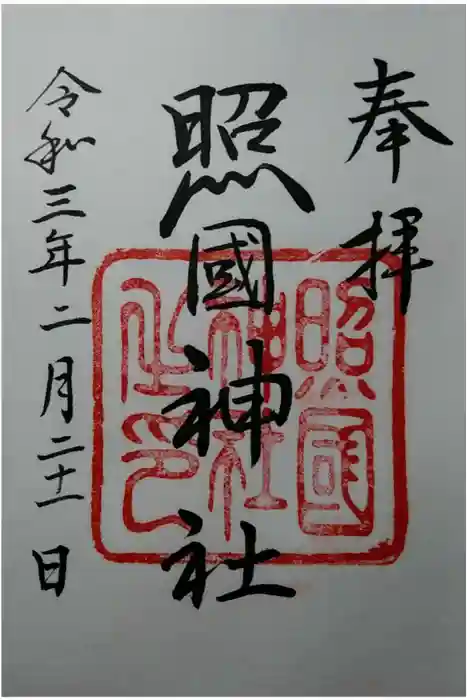 奉拝
照國神社
令和三年二月二十一日
照国
神社
之印